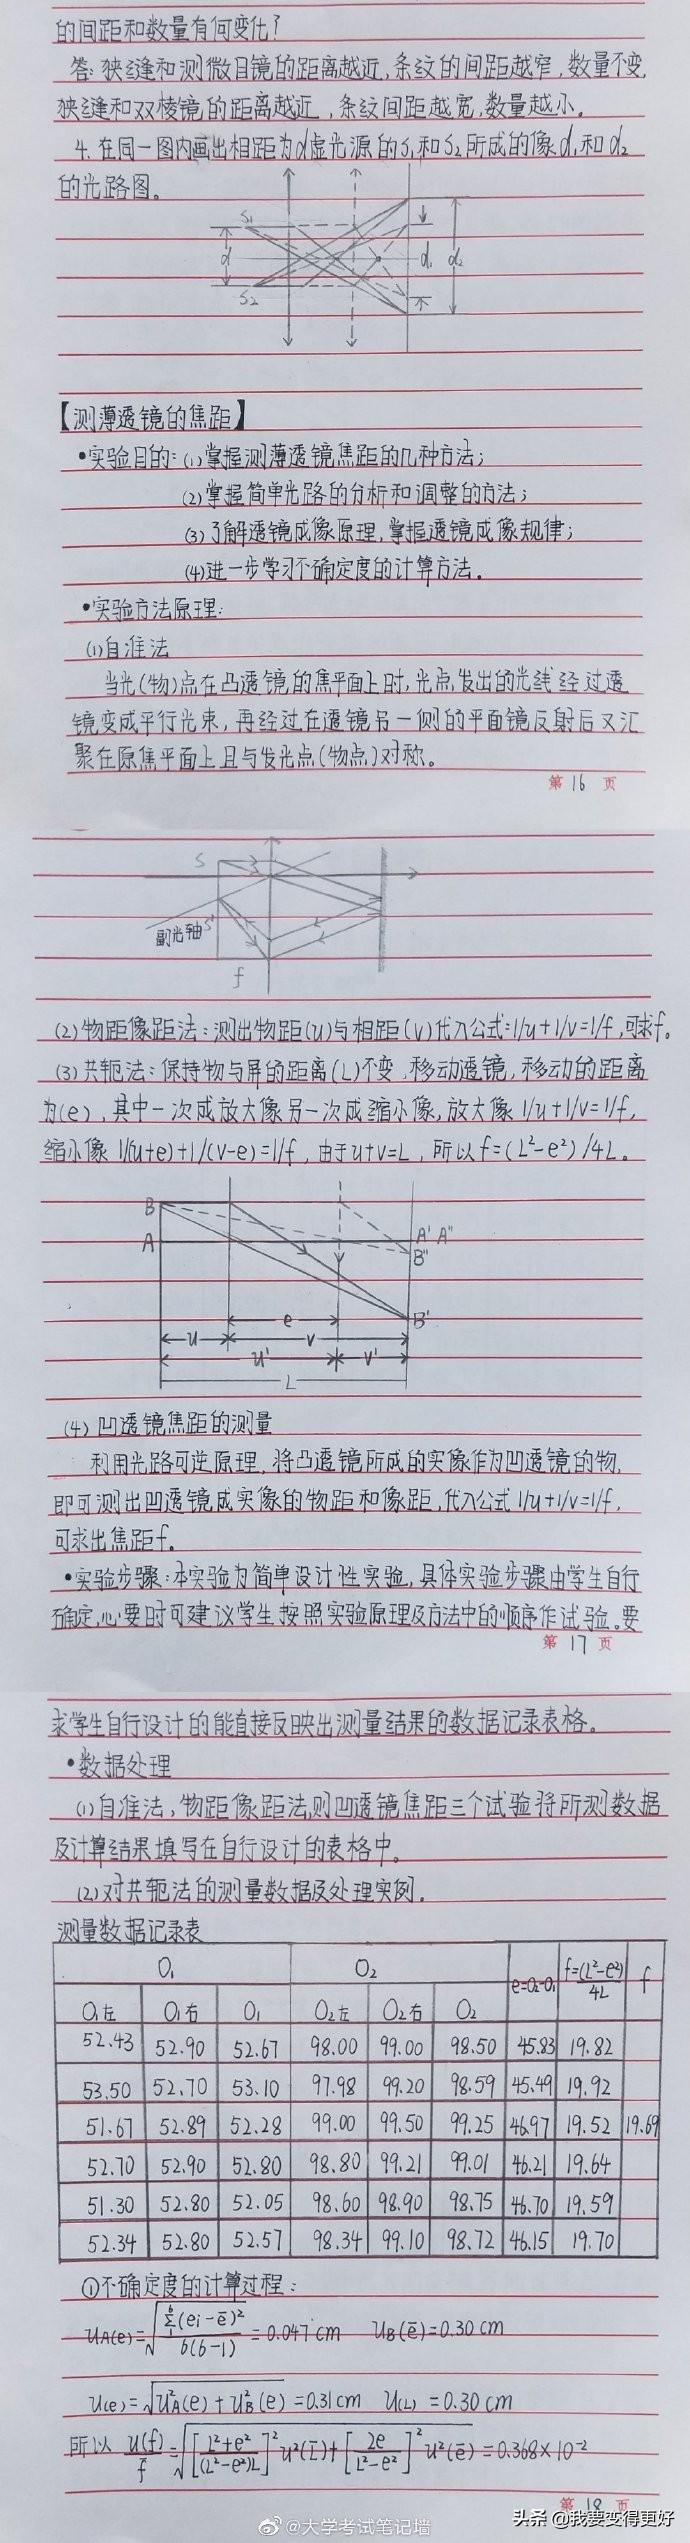 的间距和数量有何变化？
答：狭缝和测微目镜的距离越近，条纹的间距越窄，数量不变，
狭缝和双棱镜的距离越近，条纹间距越宽，数量越小。
4. 在同一图内画出相距为d虚光源的S₁和S₂所成的像d₁和d₂
的光路图。
S₁
d d₁ d₂
S₂
【测薄透镜的焦距】
•实验目的：(1)掌握测薄透镜焦距的几种方法；
(2)掌握简单光路的分析和调整的方法；
(3)了解透镜成像原理，掌握透镜成像规律；
(4)进一步学习不确定度的计算方法。
•实验方法原理：
(1)自准法
当光(物)点在凸透镜的焦平面上时，光点发出的光线经过透
镜变成平行光束，再经过在透镜另一侧的平面镜反射后又汇
聚在原焦平面上且与发光点(物点)对称。
第16页
S
副光轴 S'
f
(2)物距像距法：测出物距(u)与相距(v)代入公式：1/u+1/v=1/f，可求f。
(3)共轭法：保持物与屏的距离(L)不变，移动透镜，移动的距离
为(e)，其中一次成放大像另一次成缩小像，放大像1/u+1/v=1/f，
缩小像1/(u+e)+1/(v-e)=1/f，由于u+v=L，所以f=(L²-e²)/4L。
B
A A' A''
B''
e B'
u v
u' v'
L
(4)凹透镜焦距的测量
利用光路可逆原理，将凸透镜所成的实像作为凹透镜的物，
即可测出凹透镜成实像的物距和像距，代入公式1/u+1/v=1/f，
可求出焦距f。
•实验步骤：本实验为简单设计性实验，具体实验步骤由学生自行
确定，必要时可建议学生按照实验原理及方法中的顺序作试验。要
第17页
求学生自行设计的能直接反映出测量结果的数据记录表格。
•数据处理
(1)自准法，物距像距法，则凹透镜焦距三个试验将所测数据
及计算结果填写在自行设计的表格中。
(2)对共轭法的测量数据及处理实例。
测量数据记录表
O₁ O₂ e=O₂-O₁ f=(L²-e²)/4L f
O₁左 O₁右 O₁ O₂左 O₂右 O₂
52.43 52.90 52.67 98.00 99.00 98.50 45.83 19.82
53.50 52.70 53.10 97.98 99.20 98.59 45.49 19.92
51.67 52.89 52.28 99.00 99.50 99.25 46.97 19.52 19.69
52.70 52.90 52.80 98.80 99.21 99.01 46.21 19.64
51.30 52.80 52.05 98.60 98.90 98.75 46.70 19.59
52.34 52.80 52.57 98.34 99.10 98.72 46.15 19.70
①不确定度的计算过程：
u_A(e)=√(∑(ei-ē)²/6(6-1))=0.047cm u_B(ē)=0.30cm
u(e)=√(u²_A(e)+u²_B(e))=0.31cm u(L)=0.30cm
所以 u(f)/f̄=√([(L²+e²)/((L²-e²)L)]²u²(L̄)+[2e/(L²-e²)]²u²(ē))=0.368×10⁻²
第18页
@大学考试笔记墙
头条 @我要变得更好